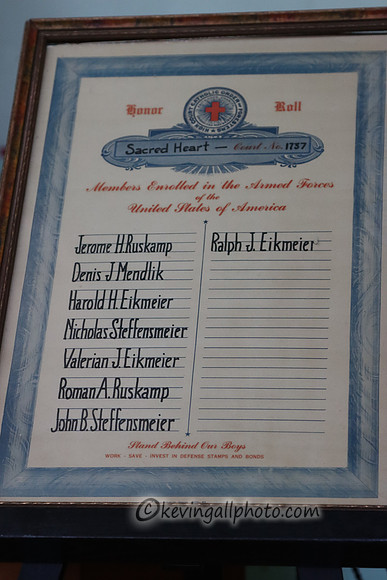 Honor Roll
Sacred Heart — Court No. 1737
Members Enrolled in the Armed Forces
of the
United States of America
Jerome H. Ruskamp
Denis J Mendlik
Harold H. Eikmeier
Nicholas Steffensmeier
Valerian J. Eikmeier
Roman A. Ruskamp
John B. Steffensmeier
Ralph J. Eikmeier
Stand Behind Our Boys
WORK - SAVE - INVEST IN DEFENSE STAMPS AND BONDS
©kevingallphoto.com